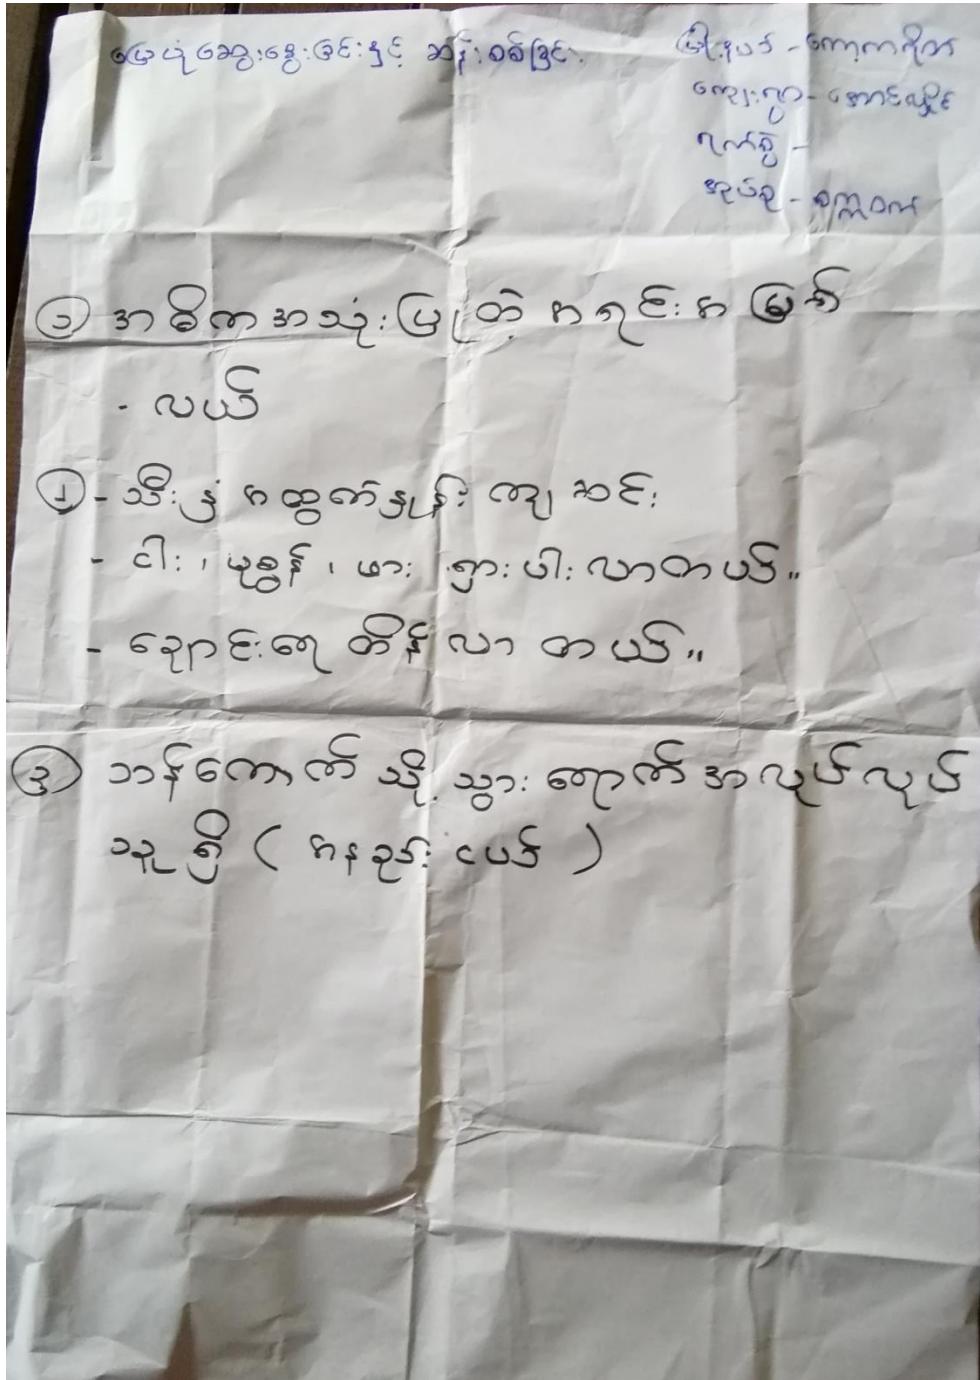 မြေပုံဆွေးနွေးခြင်းနှင့် ဆန်းစစ်ခြင်း
မြို့နယ် - ကော့ကရိတ်
ကျေးရွာ - အောင်လှိုင်
ရက်စွဲ -
အုပ်စု -
၁ အဓိကအသုံးပြုတဲ့ အရင်းအမြစ်
- လယ်
၂ - သီးနှံ အထွက်နှုန်း ကျဆင်း
- ငါး ၊ ပုစွန် ၊ ဖား ရှားပါးလာတယ်။
- ချောင်းရေ တိန်လာတယ်။
၃ ဘန်ကောက်သို့ သွားရောက်အလုပ်လုပ်
သူရှိ ( အနည်းငယ် )